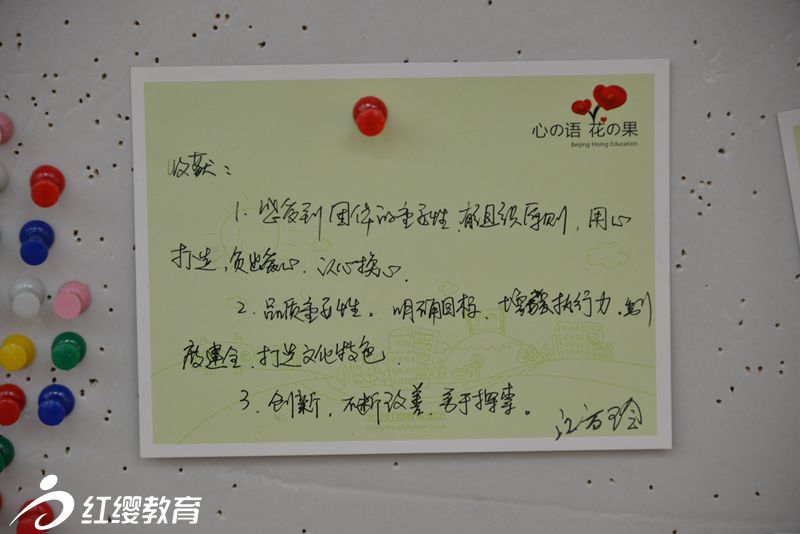 心の语 花の果
Beijing Hoing Education
收获：
1. 感受到团体的重要性、有组织原则，用心
打造，负出爱心、以心换心。
2. 品质重要性。明确目标、增强执行力、制
度建全、打造文化特色。
3. 创新，不断改善、善于探索。
江
红缨教育